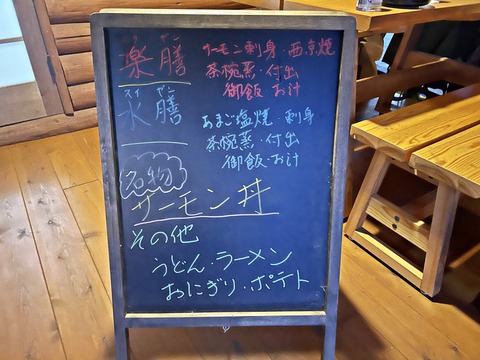 楽膳 サーモン刺身・西京焼
茶碗蒸・付出
御飯・お汁
スイ ゼン
水膳 あまご塩焼・刺身
茶碗蒸・付出
御飯・お汁
名物
サーモン丼
その他
うどん・ラーメン
おにぎり・ポテト